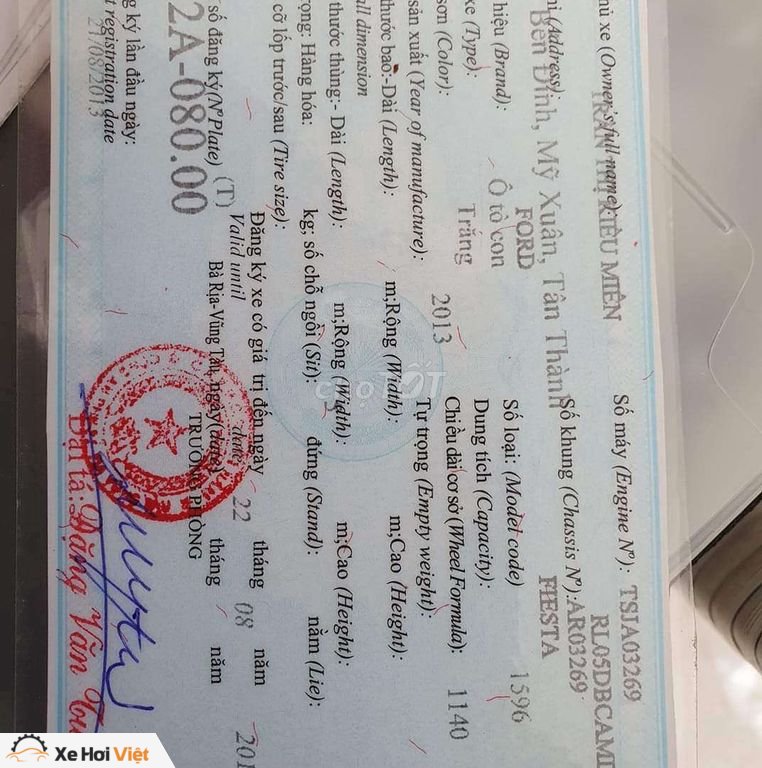 hủ xe (Owner's full name):
TRẦN THỊ KIỀU MIÊN
hỉ (Address):
Bến Đình, Mỹ Xuân, Tân Thành
hiệu (Brand):
FORD
xe (Type):
Ô tô con
sơn (Color):
Trắng
sản xuất (Year of manufacture):
2013
thước bao:-Dài (Length): m;Rộng (Width): m;Cao (Height):
all dimension
thước thùng:- Dài (Length): m;Rộng (Width): m;Cao (Height):
rọng: Hàng hóa: kg; số chỗ ngồi (Sit): đứng (Stand): nằm (Lie):
cỡ lốp trước/sau (Tire size):
Số máy (Engine Nº): TSJA03269
RL05DBCAM
Số khung (Chassis Nº): AR03269
FIESTA
Số loại: (Model code)
Dung tích (Capacity): 1596
Chiều dài cơ sở (Wheel Formula):
Tự trọng (Empty weight): 1140
Đăng ký xe có giá trị đến ngày tháng năm
Valid until date
22 08 201
Bà Rịa-Vũng Tàu, ngày (date) tháng năm
TRƯỞNG PHÒNG
số đăng ký(Nº Plate) (T)
2A-080.00
ng ký lần đầu ngày:
t registration date
21/08/2013
Đại tá: Đặng Văn
chợ TỐT
Xe Hơi Việt